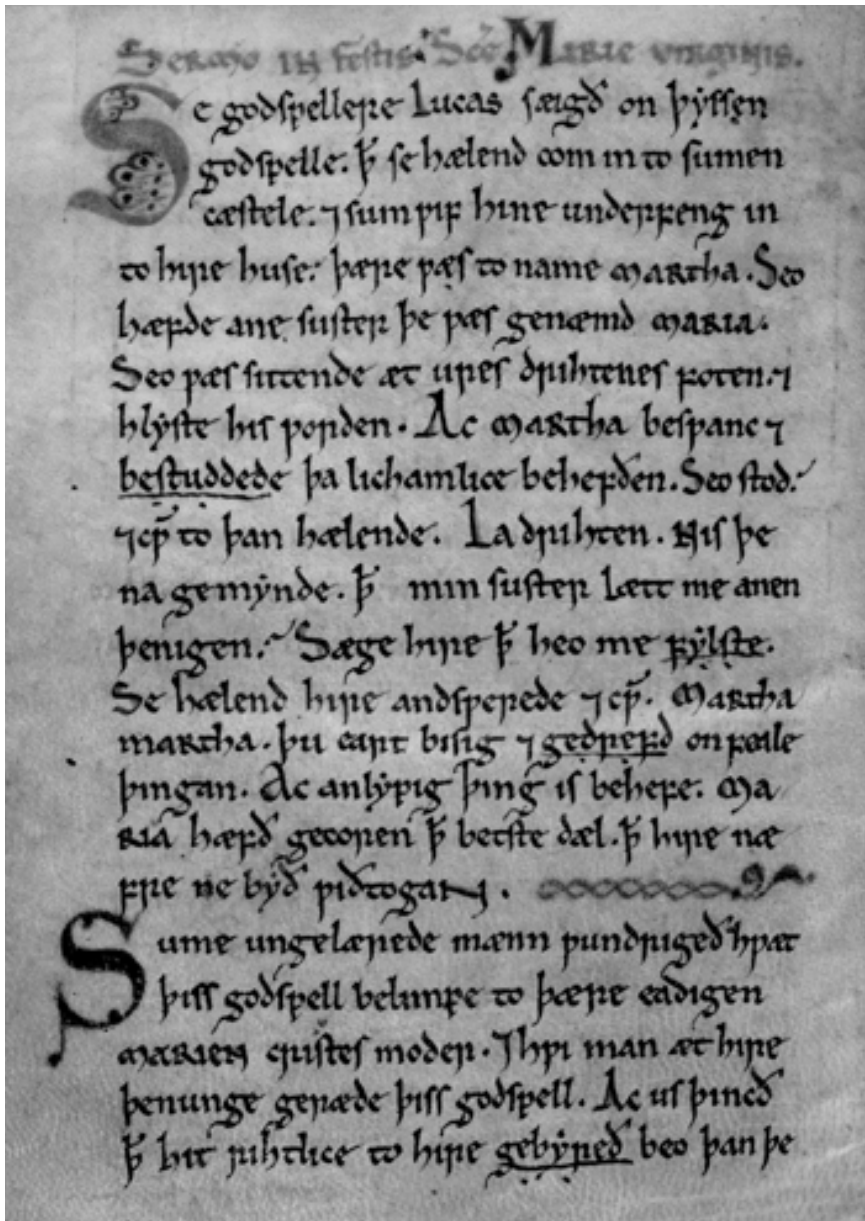 Sermo in festis Sc̄e Marie virginis.
Se godspellere Lucas sæigð on þyssen
godspelle. ꝥ se hælend com in to sumen
cæstele. ⁊ sum ƿif hine underfeng in
to hire huse. þære ƿæs to name martha. Seo
hæfde ane suster þe ƿæs genæmd maria.
Seo ƿæs sittende æt ures drihtenes foten. ⁊
hlyste his ƿorden. Ac martha besƿanc ⁊
bestuddede þa lichamlice behefðen. Seo stod.
⁊ cƿ̄ to þan hælende. La drihten. Nis þe
na gemynde. ꝥ min suster lætt me anen
þenigen. Sæge hire ꝥ heo me fylste.
Se hælend hire andsƿerede ⁊ cƿ̄. Martha
martha. þu eart bisig ⁊ gedrefd on feale
þingan. Ac anlypig þing is behefe. Ma-
ria hæfð gecoren ꝥ betste dæl. ꝥ hire næ
fre ne byð ƿiðtogan.
Sume ungelærede mænn ƿundrigeð hƿæt
þiss godspell belimpe to þære eadigen
marien cristes moder. ⁊ hƿi man æt hire
þenunge geræde þiss godspell. Ac us þincð
ꝥ hit rihtlice to hire gebyreð beo þan þe